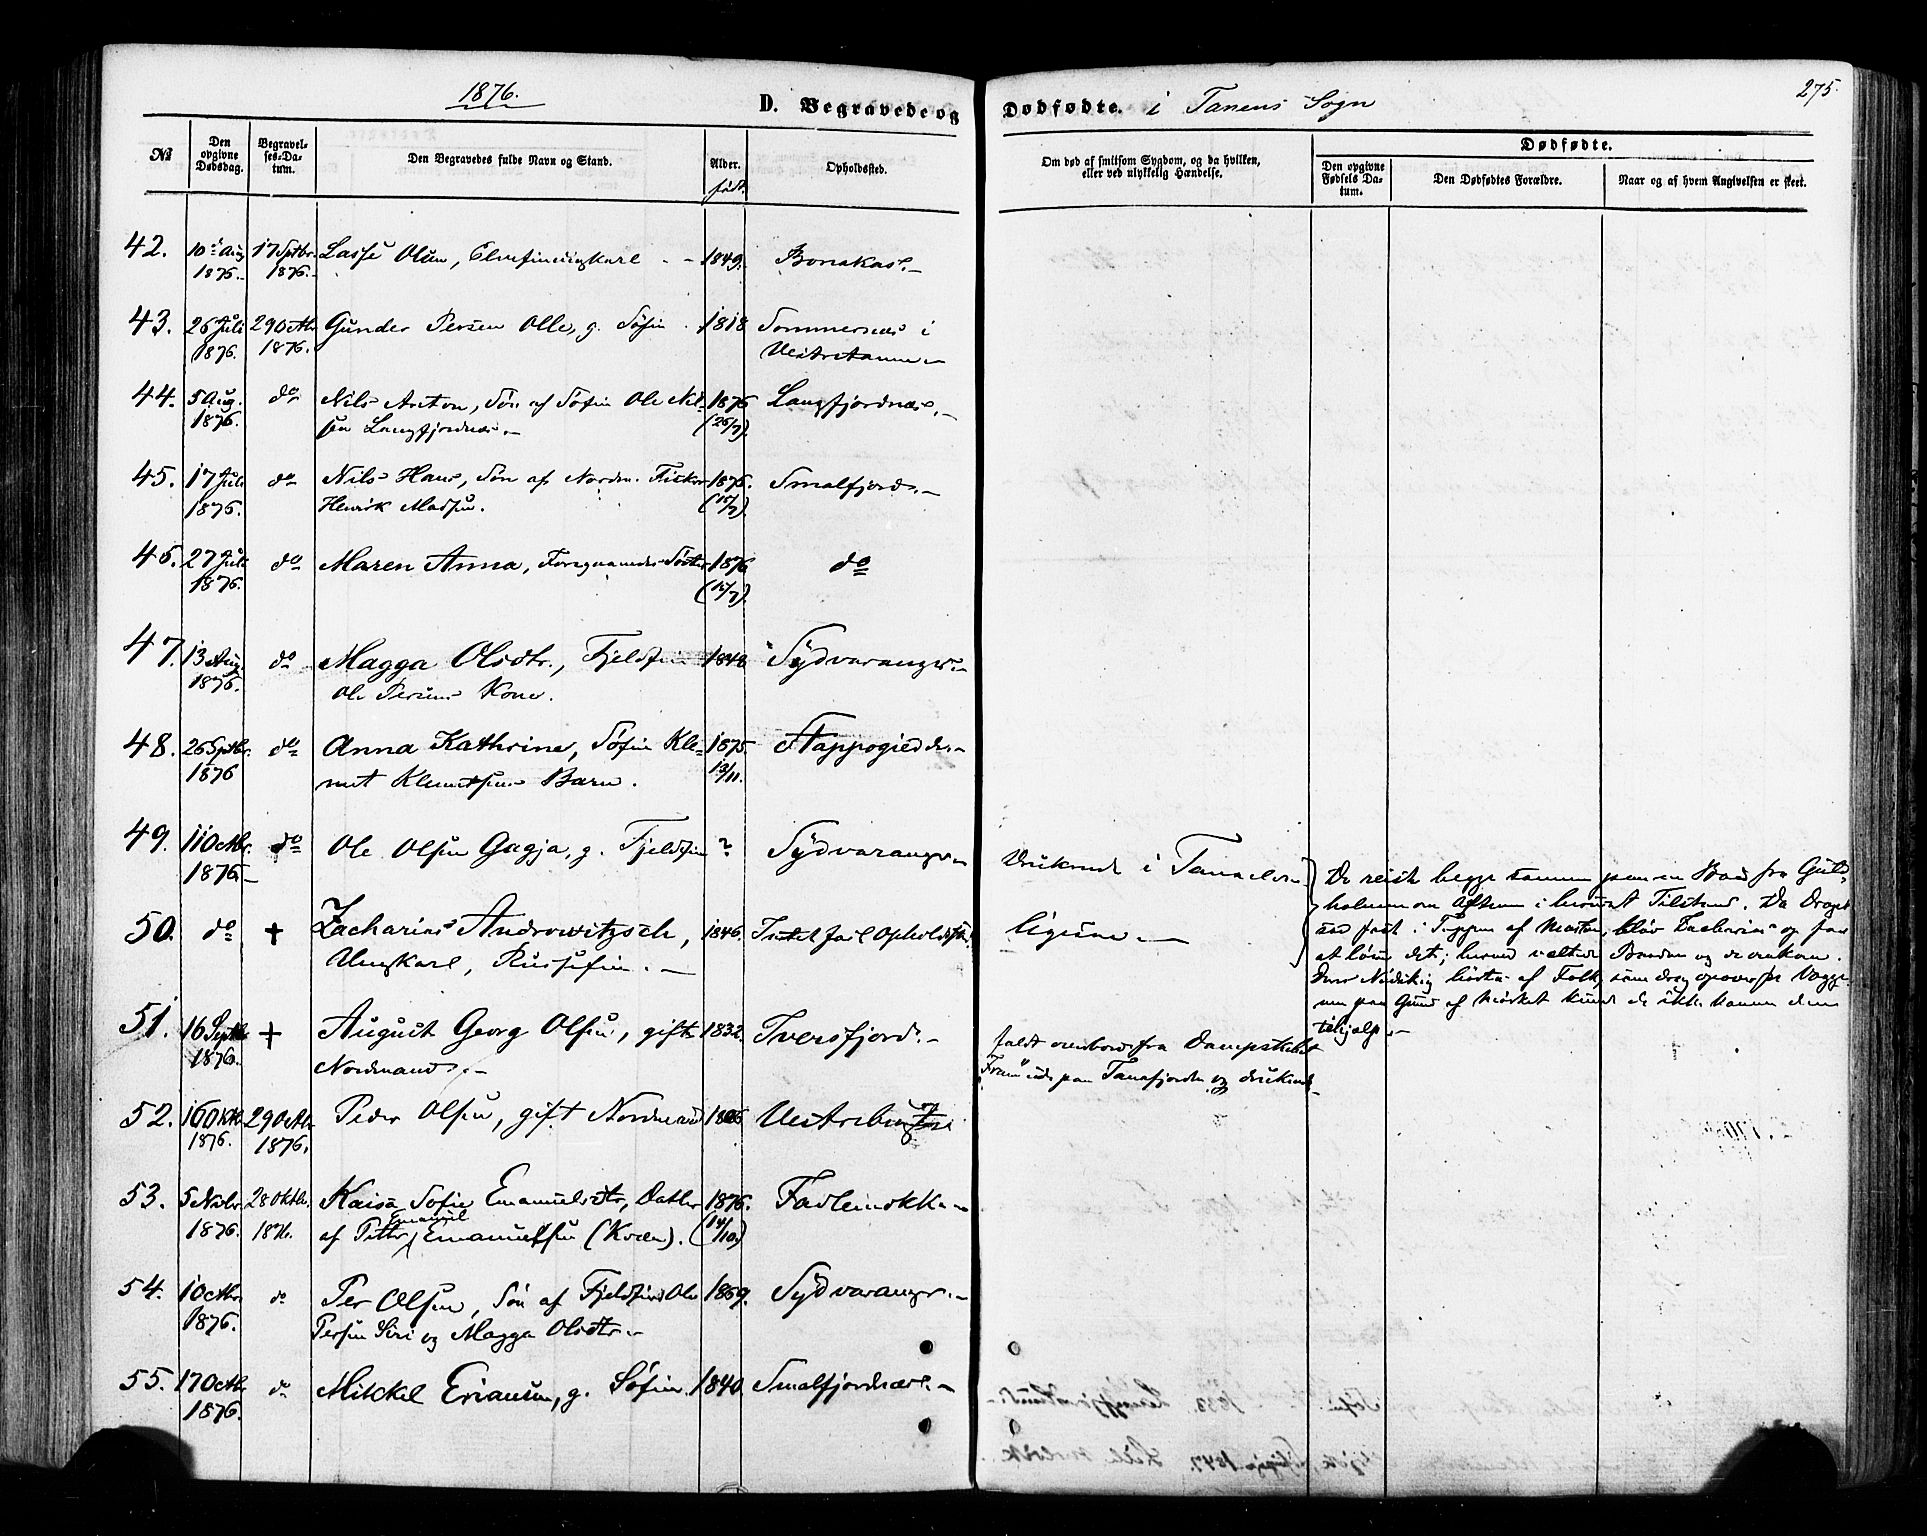 1876.
D. Begravede og Dødfødte. i Tanens Sogn
275.
№
Den opgivne Dødsdag.
Begravel-ses-Da-tum.
Den Begravedes fulde Navn og Stand.
Alder.
født.
Opholdssted.
Om død af smitsom Sygdom, og da hvilken, eller ved ulykkelig Hændelse.
Dødfødte.
Den opgivne Fødsels Da-tum.
Den Dødfødtes Forældre.
Naar og af hvem Angivelsen er skeet.
42. 10 Aug 17 Septbr. Lasse Olsen, Elvefin ungkarl - 1849. Bonakas.-
1876.- 1876.-
43. 26 Juli 29 Octbr Gunder Persen Olle, g. Søfin 1818 Sommernæs i
1876. 1876. Vestretanen.-
44. 5 Aug. do Nils Anton, Søn af Søfin Ole Nil- 1876 Langfjordnæs.-
1876. sen Langfjordnæs.- (26/7).
45. 17 Juli do Nils Hans, Søn af Nordm. Fisker 1876. Smalfjord.-
1876. Henrik Madsen. (15/7).
46. 27 Juli do Maren Anna, Foregaaendes Søster 1876 do
1876. (15/7).
47. 13 Aug. do Magga Olsdtr., Fjeldfin 1848 Sydvaranger.-
1876. Ole Persens Kone.
48. 26 Septbr. do Anna Kathrine, Søfin Kle- 1875. Stappogiedde.-
1876 met Klemetsens Barn. 13/11.
49. 11 Octbr. do Ole Olsen Gagja, g. Fjeldfin ? Sydvaranger Druknede i Tanaelven
1876.-
De reiste begge sammen paa en Baad fra Guld-
holmen om Aftenen i beruset Tilstand. Da Draget
sad fast i Toppen af Masten, klev Zacharias op for
at løse det; herved væltede Baaden og de omkom.
50. do + Zacharias Androwitzsch, 1846. Intet fast Opholdsst. ligesaa.-
Ungkarl, Russefin.-
Deres Nødskrig hørtes af Folk, som
paa Grund af Mørket kunde de ikke komme dem
tilhjælp.-
51. 16 Septbr + August Georg Olsen, gift 1832. Iversfjord.- faldt overbord fra Dampskibet
1876. Nordmand.- "Fram" ude paa Tanafjorden og druknede.-
52. 16 Okt 29 Octbr Peder Olsen, gift Nordmand
1876. 1876.
53. 5 Novbr 28 Oktbr. Kaisa Sofie Emanuelsdtr, Datter 1876.
1876. 1876. af Petter Emanuel Emanuelsen (Kvæn). (14/10)
54. 1 Octbr. do Per Olsen, Søn af Fjeldfin Ole 1869. Sydvaranger.-
1876. Persen Siri og Magga Olsdtr.-
55. 17 Octbr. do Mikkel Eriansen, g. Søfin. 1840 Smalfjordnæs.-
1876.